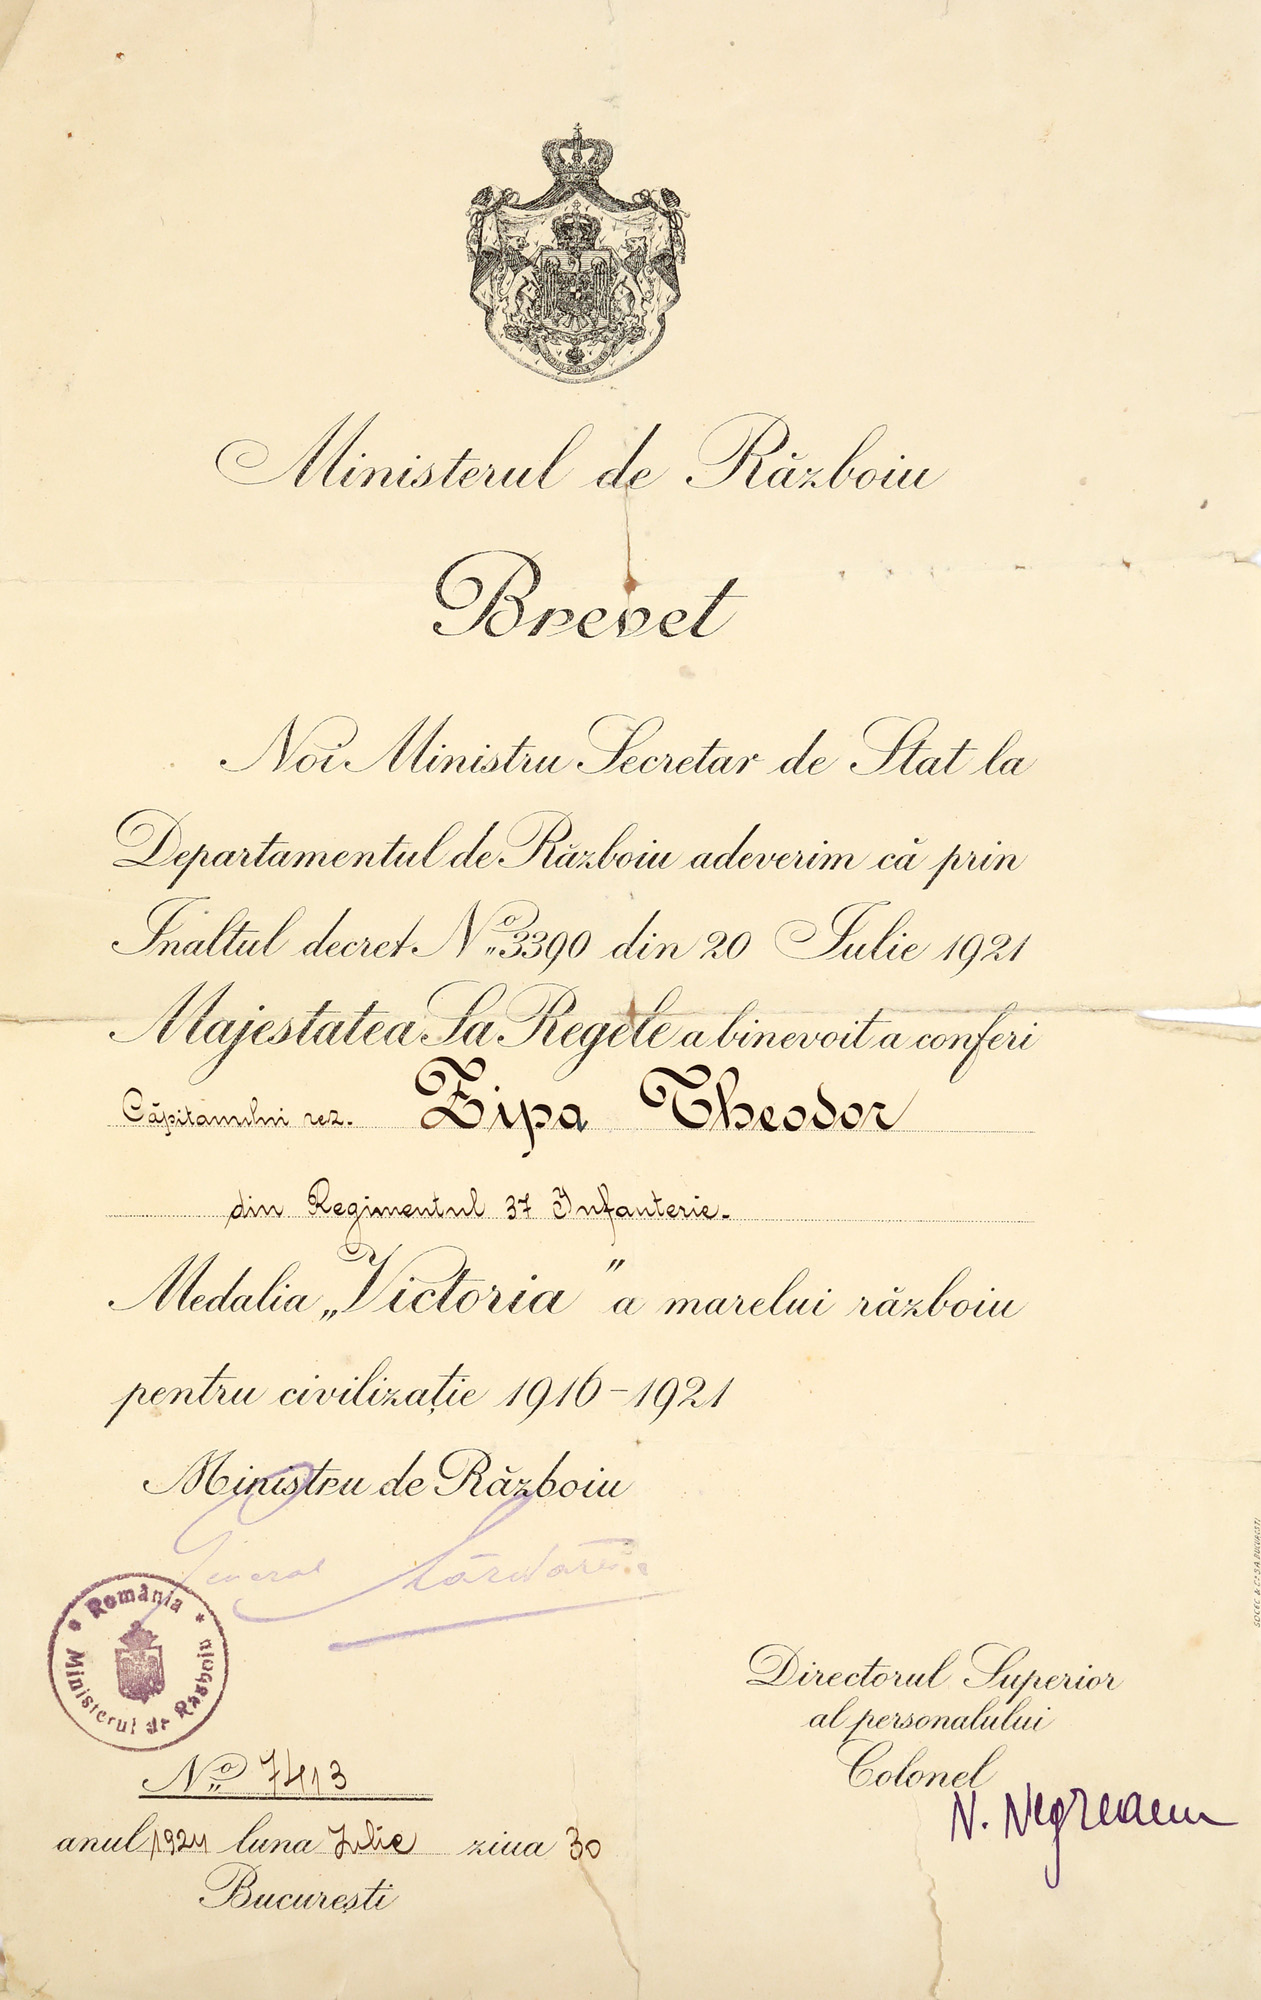 Ministerul de Războiu
Brevet
Noi Ministru Secretar de Stat la
Departamentul de Războiu adeverim că prin
Inaltul decret No. 3390 din 20 Iulie 1921
Majestatea Sa Regele a binevoit a conferi
Căpitanului rez. Zipa Theodor
din Regimentul 37 Infanterie.
Medalia „Victoria" a marelui războiu
pentru civilizație 1916-1921
Ministru de Războiu
General Mărdărescu
România
Ministerul de Războiu
No. 7413
anul 1924 luna Iulie ziua 30
București
Directorul Superior
al personalului
Colonel
N. Negreanu
SOCEC & C° S.A. BUCUREȘTI